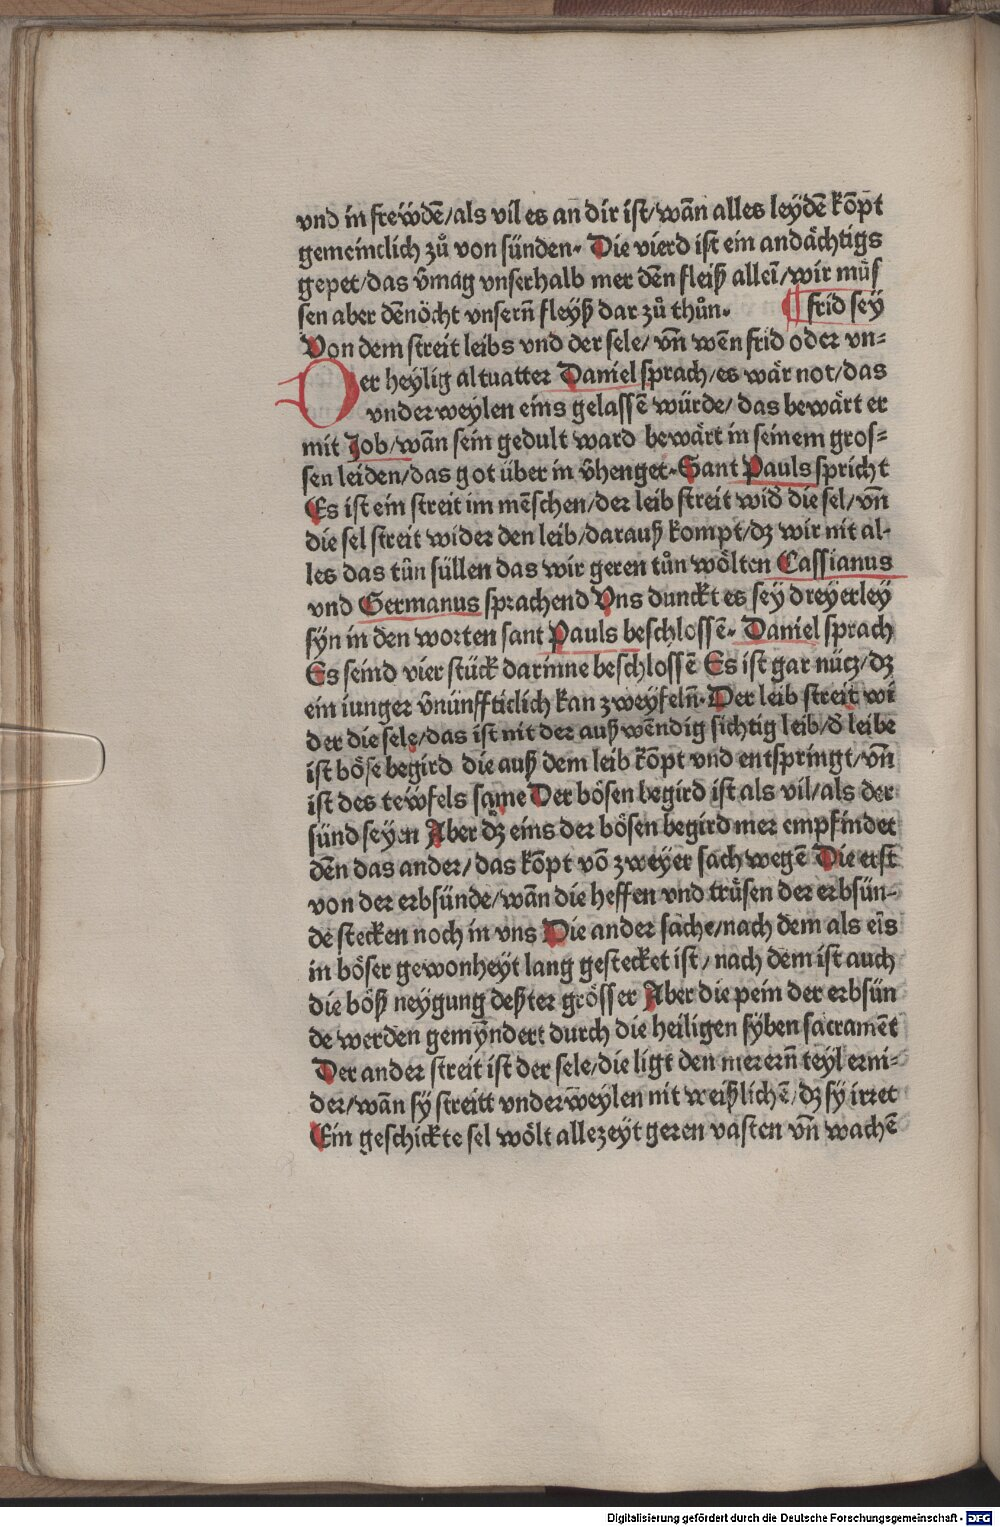 vnd in frewdē/als vil es an dir ist/wañ alles leydē kōpt
gemeincklich zů von sünden. Die vierd ist ein andåchtigs
gepet/das v̄mag vnserhalb mer dēn fleiß alleī/wir můs
sen aber dēnöcht vnsern̄ fleyß dar zů thůn. ¶ frid sey
Von dem streit leibs vnd der sele/ vn̄ wēn frid oder vn⸗
Der heylig altuatter Daniel sprach/es wår not/das
vnderweylen eins gelassē würde/ das bewårt er
mit Job/wān sein gedult ward bewårt in seinem gros⸗
sen leiden/das got über in v̄henget. Sant Pauls spricht
Es ist ein streit im mēschen/der leib streit wid̄ die sel/vn̄
die sel streit wider den leib/darauß kompt/dz wir nit al⸗
les das tůn süllen das wir geren tůn wölten Cassianus
vnd Germanus sprachend Vns dunckt es sey dreyerley
syn in den worten sant Pauls beschlossē. Daniel sprach
Es seind vier stück darinne beschlossē Es ist gar nücz/dz
ein iunger v̄nünffticlich kan zweyfeln̄. Der leib streit wi
der die sele/das ist nit der außwēndig sichtig leib/d̄ leibe
ist böse begird die auß dem leib kōpt vnd entspringt/vn̄
ist des tewfels same Der bösen begird ist als vil/als der
sünd seyen Aber dz eins der bösen begird mer empfindet
dēn das ander/das kōpt vō zweyer sach wegē Die erst
von der erbsünde/wān die heffen vnd trůsen der erbsün⸗
de stecken noch in vns Die ander sache/nach dem als eīs
in böser gewonheyt lang gestecket ist/ nach dem ist auch
die böß neygung deßter grösser Aber die pein der erbsün
de werden gemyndert durch die heiligen syben sacramēt
Der ander streit ist der sele/die ligt den merern̄ teyl erni⸗
der/wān sy streitt vnderweylen nit weißlichē/dz sy irret
Ein geschickte sel wölt allezeyt geren vasten vn̄ wachē
Digitalisierung gefördert durch die Deutsche Forschungsgemeinschaft - DFG